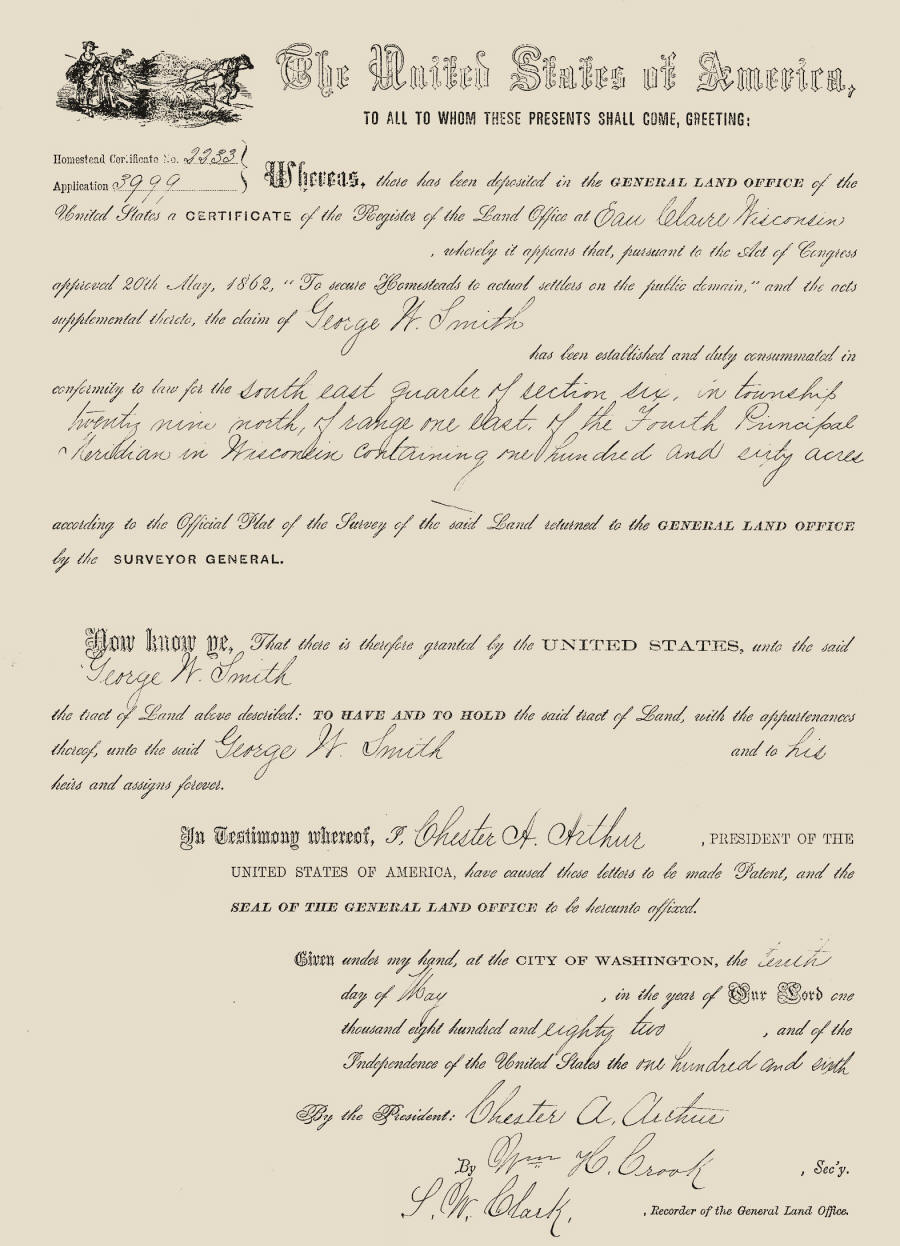 The United States of America,
TO ALL TO WHOM THESE PRESENTS SHALL COME, GREETING:
Homestead Certificate No. 2233
Application 3999
Whereas, there has been deposited in the GENERAL LAND OFFICE of the
United States a CERTIFICATE of the Register of the Land Office at Eau Claire Wisconsin
, whereby it appears that, pursuant to the Act of Congress
approved 20th May, 1862, "To secure Homesteads to actual settlers on the public domain," and the acts
supplemental thereto, the claim of George W. Smith
has been established and duly consummated in
conformity to law for the south east quarter of section six, in township
twenty nine north, of range one east, of the Fourth Principal
Meridian in Wisconsin containing one hundred and sixty acres
according to the Official Plat of the Survey of the said Land returned to the GENERAL LAND OFFICE
by the SURVEYOR GENERAL.
Now know ye, That there is therefore granted by the UNITED STATES, unto the said
George W. Smith
the tract of Land above described: TO HAVE AND TO HOLD the said tract of Land, with the appurtenances
thereof, unto the said George W. Smith and to his
heirs and assigns forever.
In Testimony whereof, I, Chester A. Arthur, PRESIDENT OF THE
UNITED STATES OF AMERICA, have caused these letters to be made Patent, and the
SEAL OF THE GENERAL LAND OFFICE to be hereunto affixed.
Given under my hand, at the CITY OF WASHINGTON, the tenth
day of May, in the year of Our Lord one
thousand eight hundred and eighty two, and of the
Independence of the United States the one hundred and sixth
By the President: Chester A. Arthur
By Wm H. Crook, Sec'y.
S. W. Clark, , Recorder of the General Land Office.